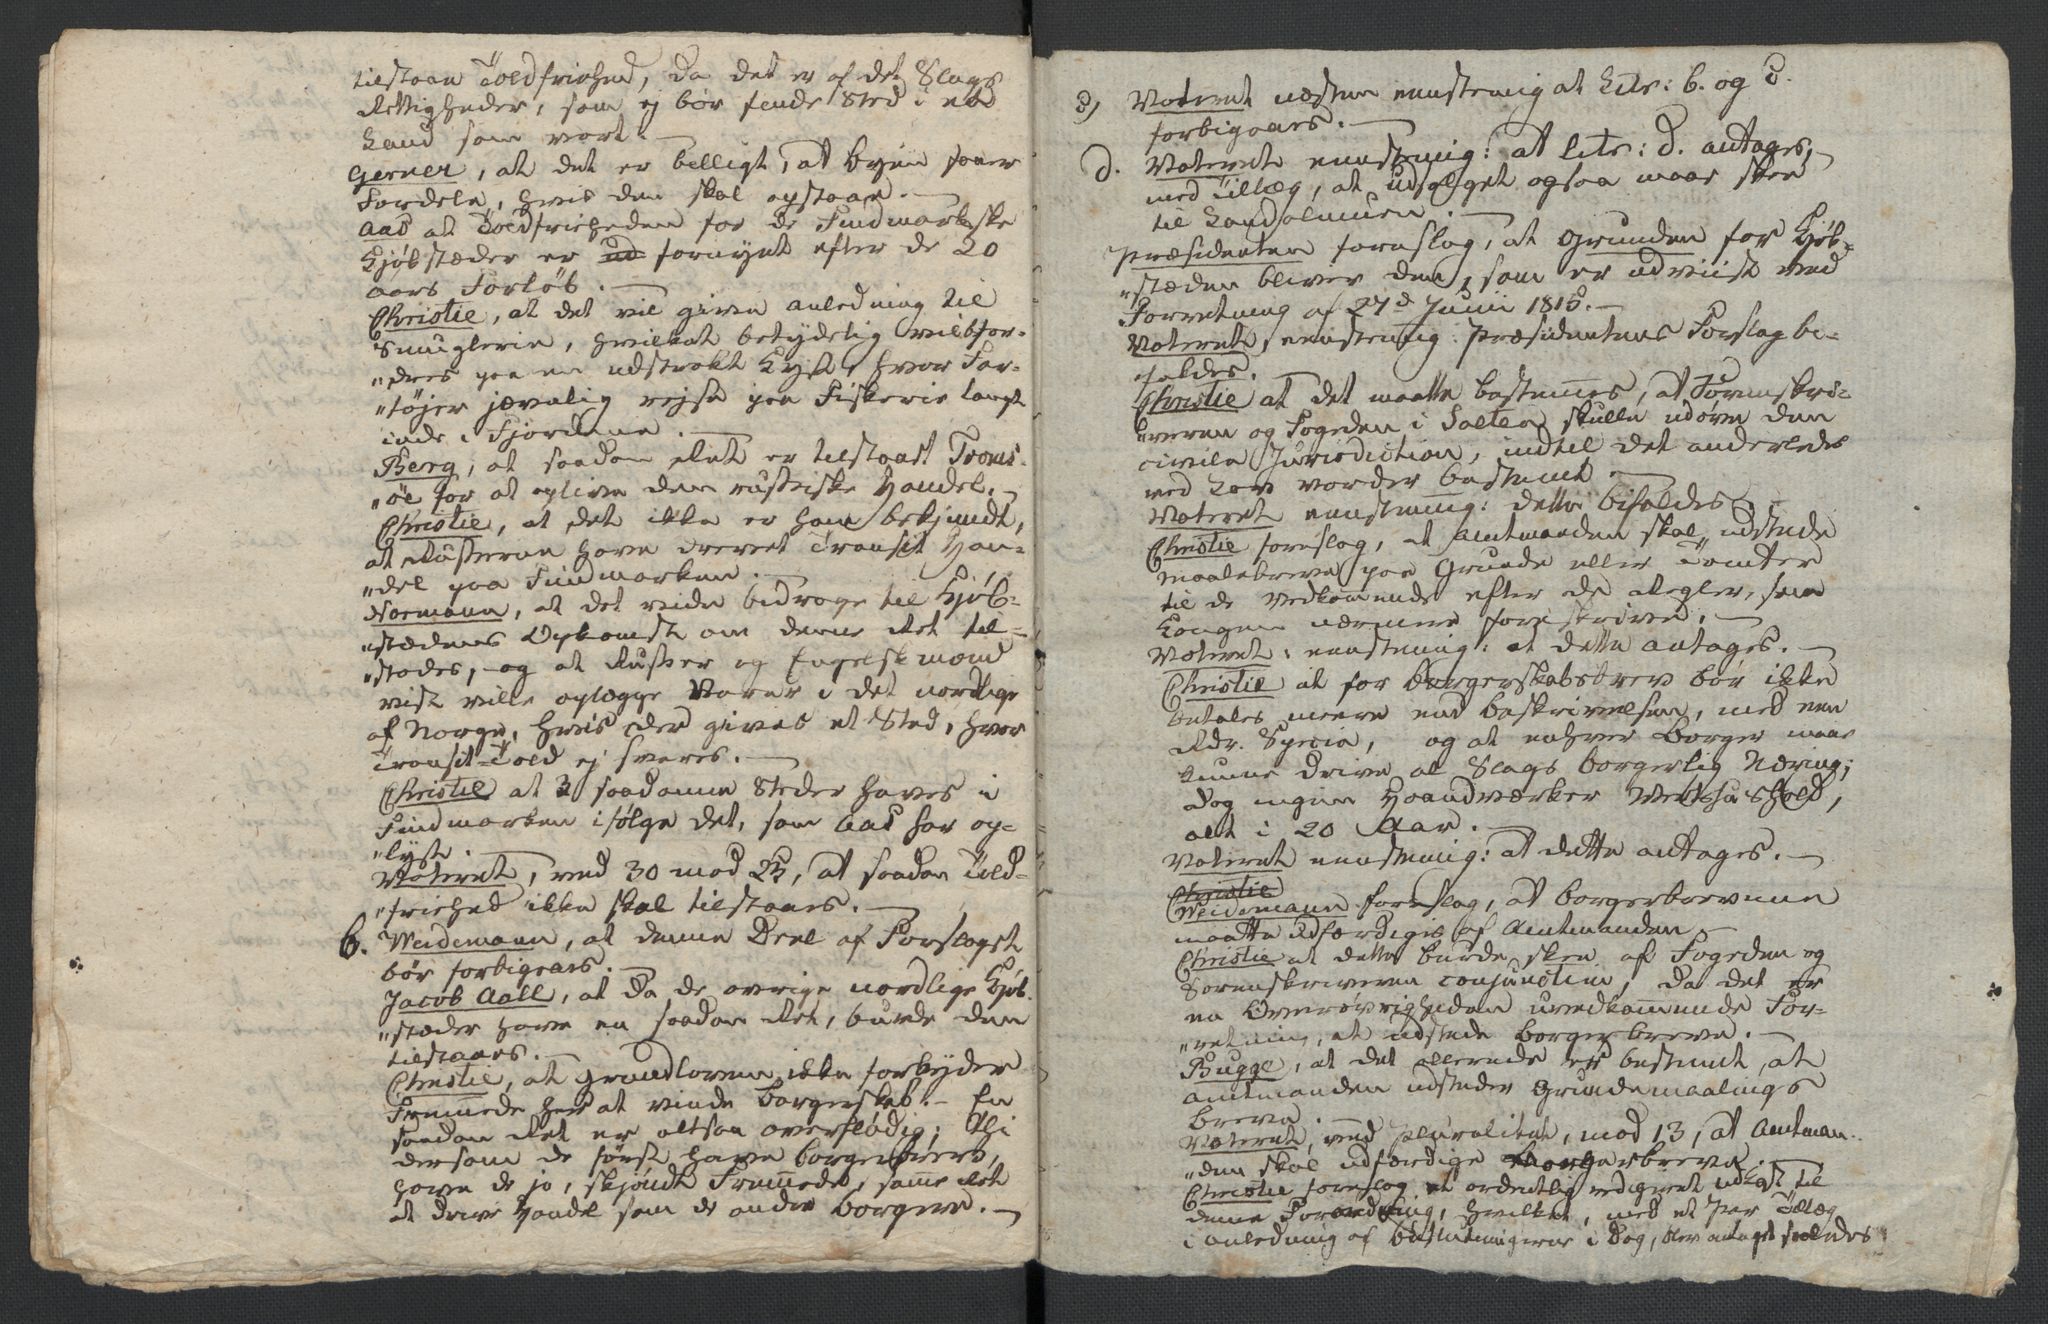 tilstaae Toldfriehed, da det er af det Slags
Rettigheder, som ej bør finde Sted i et
Land som vort. —
Gerner, at det er billigt, at Byen faaer
Fordele, hvis den skal opstaae. —
Aas at Toldfrieheden for de Findmarkske
Kjøbstæder er fornyet efter de 20
aars Forløb. —
Christie, at det vil give anledning til
Smuglerie, hvilket betydelig vil befor-
"dres paa en udstrakt Kyst, hvor Far-
"tøjer jævnlig rejse paa Fiskerie langt
inde i Fjordene. —
Berg, at saadan Ret er tilstaaet Troms-
"öe for at oplive den russiske Handel. —
Christie, at det ikke er ham bekjendt,
at Russerne have drevet Transit Han-
"del paa Findmarken. —
Normann, at det vilde bidrage til Kjøb-
"stædens Opkomst om denne Ret til-
"stodes, - og at Russer og Engelskmænd
vist ville oplægge Varer i det nordlige
af Norge, hvis der gives et Sted, hvor
Transit-Told ej svares. —
Christie at 3 saadanne Steder haves i
Findmarken ifølge det, som Aas har op-
"lyst.
Voteret, med 30 mod 23, at saadan Told-
"friehed ikke skal tilstaaes. —
b. Weidemann, at denne Deel af Forslaget
bör forbigaaes. —
Jacob Aall, at da de øvrige nordlige Kjøb-
"stæder have en saadan Ret, burde den
tilstaaes. —
Christie, at Grundloven ikke forbyder
Fremmede her at vinde Borgerskab. — En
saadan Ret er altsaa overflødig; Thi
dersom de først have Borgerbrev,
have de jo, skjøndt Fremmede, samme Ret
at drive Handel som de andre Borgere. —
c) Voteret næsten eenstemig at Litr: b. og c.
forbigaaes. —
d. Voteret eenstemig: at litr: d. antages,
med Tillæg, at Udsalget ogsaa maae skee
til Landalmuen. —
Præsidenten foreslog, at Grunden for Kjøb-
"stæden bliver den, som er udviist ved
Forretning af 27d Junii 1815. —
Voteret, eenstemig: Præsidentens Forslag bi-
faldes.
Christie at det maatte bestemmes, at Sorenskri-
"veren og Fogeden i Salten skulle udøve den
civile Jurisdiction, indtil det anderledes
ved Lov vorder bestemt. —
Voteret eenstemig: dette bifaldes.
Christie foreslog, at Amtmanden skal udstede
Maalebreve paa Grunde eller Tomter
til de Vedkommende efter de Regler, som
Kongen nærmere foreskriver. —
Voteret: eenstemig: at dette antages. —
Christie at for Borgerskabsbrev bör ikke
betales meere end beskrivelsen, med een
Rdr. Specie, og at enhver Borger maae
kunne drive al Slags borgerlig Næring;
dog ingen Haandværker Vertshushold,
alt i 20 Aar. —
Voteret eenstemig: at dette antages. —
Christie
Weidemann foreslog, at borgerbrevene
maatte udfærdiges af Amtmanden —
Christie at dette burde skee af Fogeden og
Sorenskriveren conjunctim, da det er
en Overøvrigheden uvedkommende For-
"retning, at udstede borgerbreve. —
Bugge, at det allerede er bestemt, at
Amtmanden udsteder Grundemaalings
breve.
Voteret, med pluralitet, mod 13, at Amtman-
"den skal udfærdige Borgerbreve. —
Christie foreslog et ordentlig redigeret udkast til
denne Forordning, hvilket, med et Par Tillæg
i anledning af beslutningerne i Dag, blev antaget saaledes